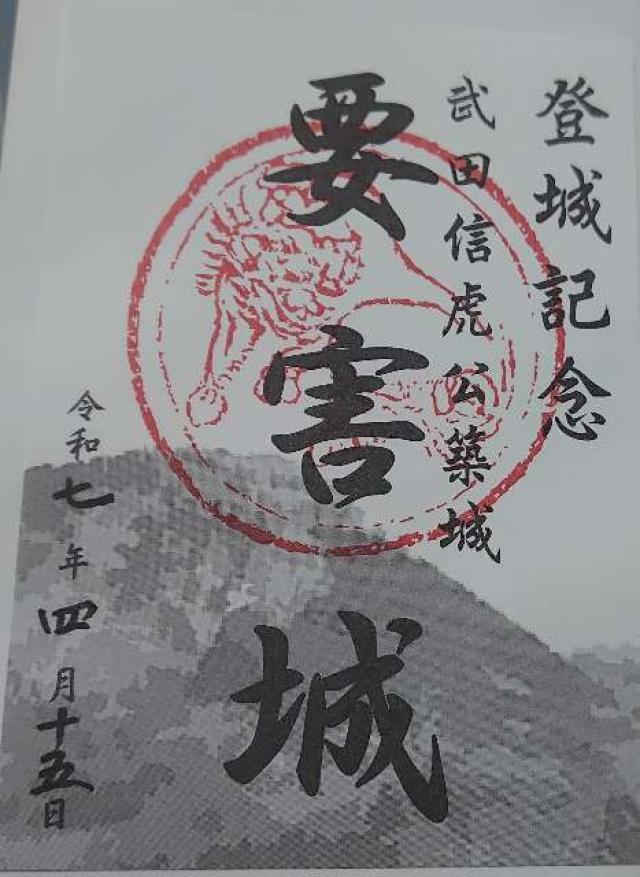 登城記念
武田信虎公築城
要害城
令和七年四月十五日